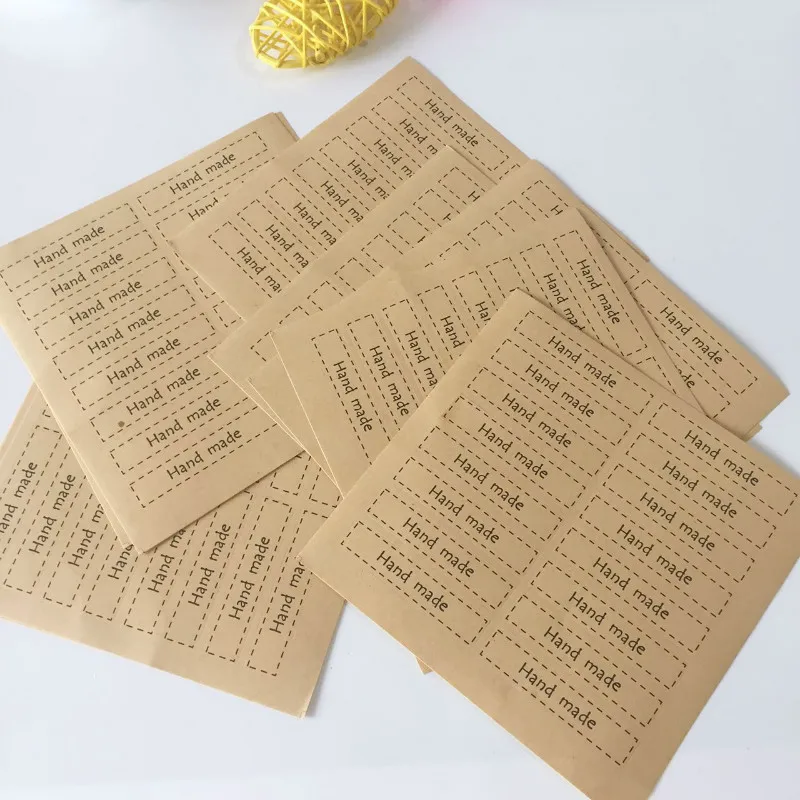 Hand made
Hand
Hand made
Hand made
Hand made
Hand made
Hand made
Hand made
Hand made
Hand made
Hand made
Hand m
Hand
Hand
Hand made
Hand made
Hand ma
Hand made
Hand made
Hand made
Hand made
Hand made
Hand made
Hand
Hand made
Hand made
Hand made
Hand made
Hand made
Hand made
Hand made
Hand made
Hand made
Hand made
Hand made
Hand made
Hand made
Hand made
Hand made
Hand made
Hand made
Hand made
Hand made
Hand made
Hand
Hand
Hand made
Hand made
Hand made
Hand made